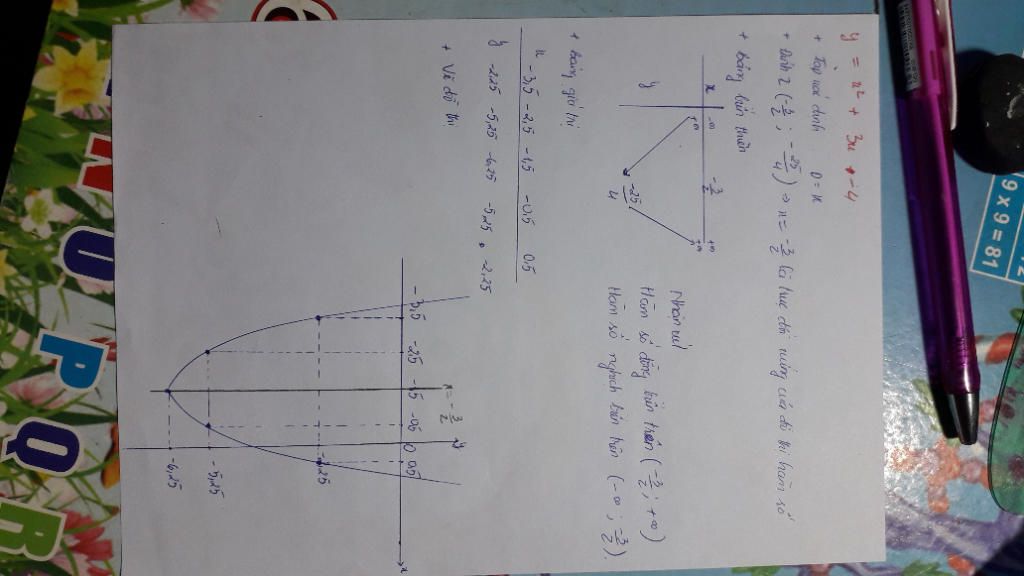 y = x² + 3x - 4
+ Tập xác định D = R
+ Đỉnh I (-3/2; -25/4) ⇒ x = -3/2 là trục đối xứng của đồ thị hàm số
+ bảng biến thiên
x -∞ -3/2 +∞
y +∞ -25/4 +∞
Nhận xét
Hàm số đồng biến trên (-3/2; +∞)
Hàm số nghịch biến trên (-∞; -3/2)
+ bảng giá trị
x -3,5 -2,5 -1,5 -0,5 0,5
y -2,25 -5,25 -6,25 -5,25 -2,25
+ Vẽ đồ thị
x = -3/2
y
-3,5 -2,5 -1,5 -0,5 0 0,5 x
-2,25
-5,25
-6,25
9 x 9 = 81
P
Q
R